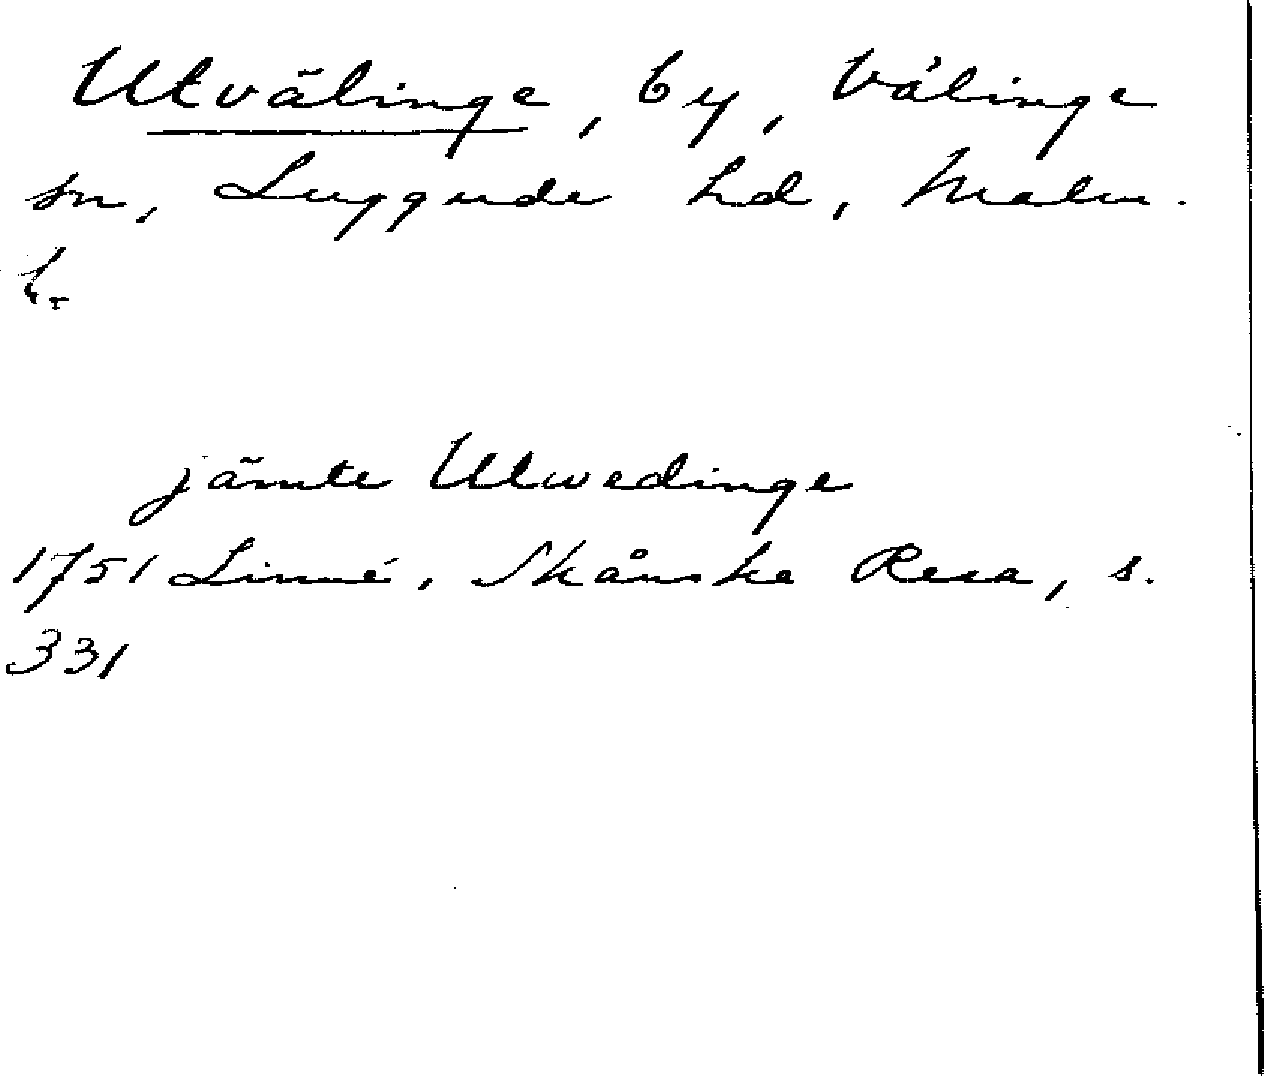 Utvälinge, by, Välinge
sn, Luggude hd, Malm.
l.
jämte Ulwedinge
1751 Linné, Skånska Resa, s.
331